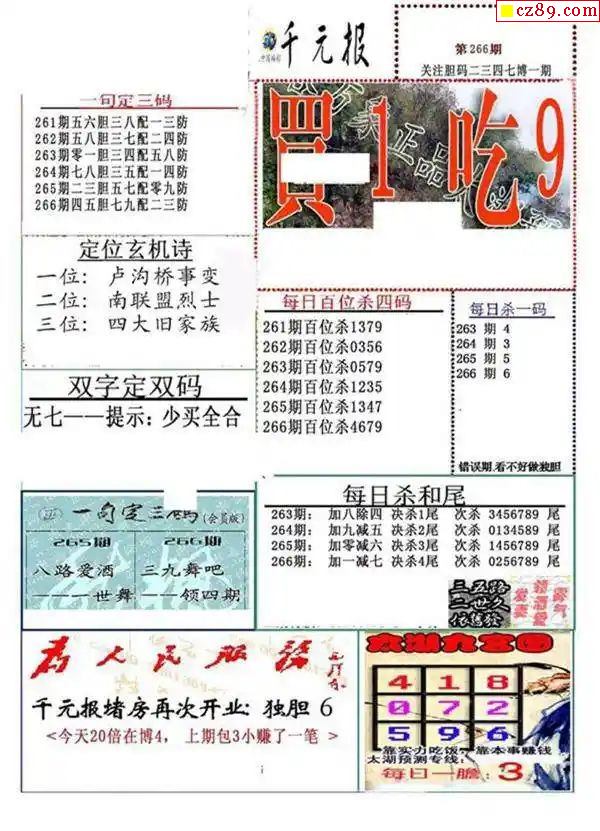 cz89.com
千元报
第266期
关注胆码二三四七博一期
一句定三码
261期五六胆三八配一三防
262期五八胆三七配二四防
263期零一胆三四配五八防
264期七八胆三五配一四防
265期二三胆五七配零九防
266期四五胆七九配二三防
買1吃9
定位玄机诗
一位: 卢沟桥事变
二位: 南联盟烈士
三位: 四大旧家族
每日百位杀四码
261期百位杀1379
262期百位杀0356
263期百位杀0579
264期百位杀1235
265期百位杀1347
266期百位杀4679
每日杀一码
263 期 4
264 期 3
265 期 5
266 期 6
错误期.看不好做独胆
双字定双码
无七——提示: 少买全合
一句定三码(会员版)
265期
266期
八路爱酒
三九舞吧
——一世舞
——领四期
每日杀和尾
263期: 加八除四 决杀1尾 次杀 3456789 尾
264期: 加九减五 决杀2尾 次杀 0134589 尾
265期: 加零减六 决杀3尾 次杀 1456789 尾
266期: 加一减七 决杀4尾 次杀 0256789 尾
三五路
二世久
为人民服务
千元报堵房再次开业: 独胆 6
<今天20倍在博4, 上期包3小赚了一笔 >
太湖九宫图
4 1 8
0 7 2
5 9 6
靠实力吃饭,靠本事赚钱
太湖预测专线:
每日一胆: 3